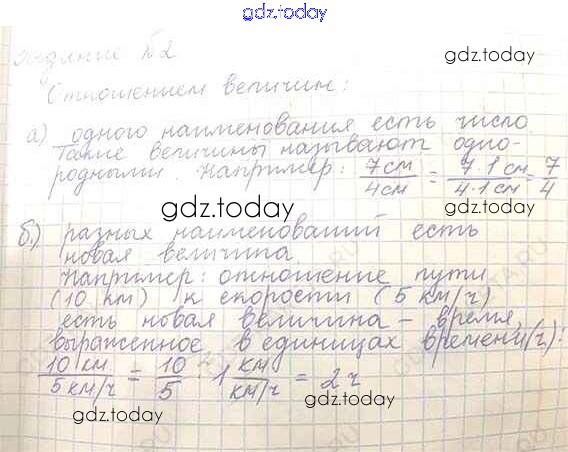 gdz.today
Задание №2
gdz.today
Отношением величин:
а) одного наименования есть число.
Такие величины называют одно-
родными. Например: 7см/4см = 7·1см/4·1см = 7/4
gdz.today
gdz.today
б) разных наименований есть
новая величина.
Например: отношение пути
(10 км) к скорости (5 км/ч)
есть новая величина – время,
выраженное в единицах времени(ч):
10 км/5 км/ч = 10/5 · 1 км/км/ч = 2ч
gdz.today
gdz.today